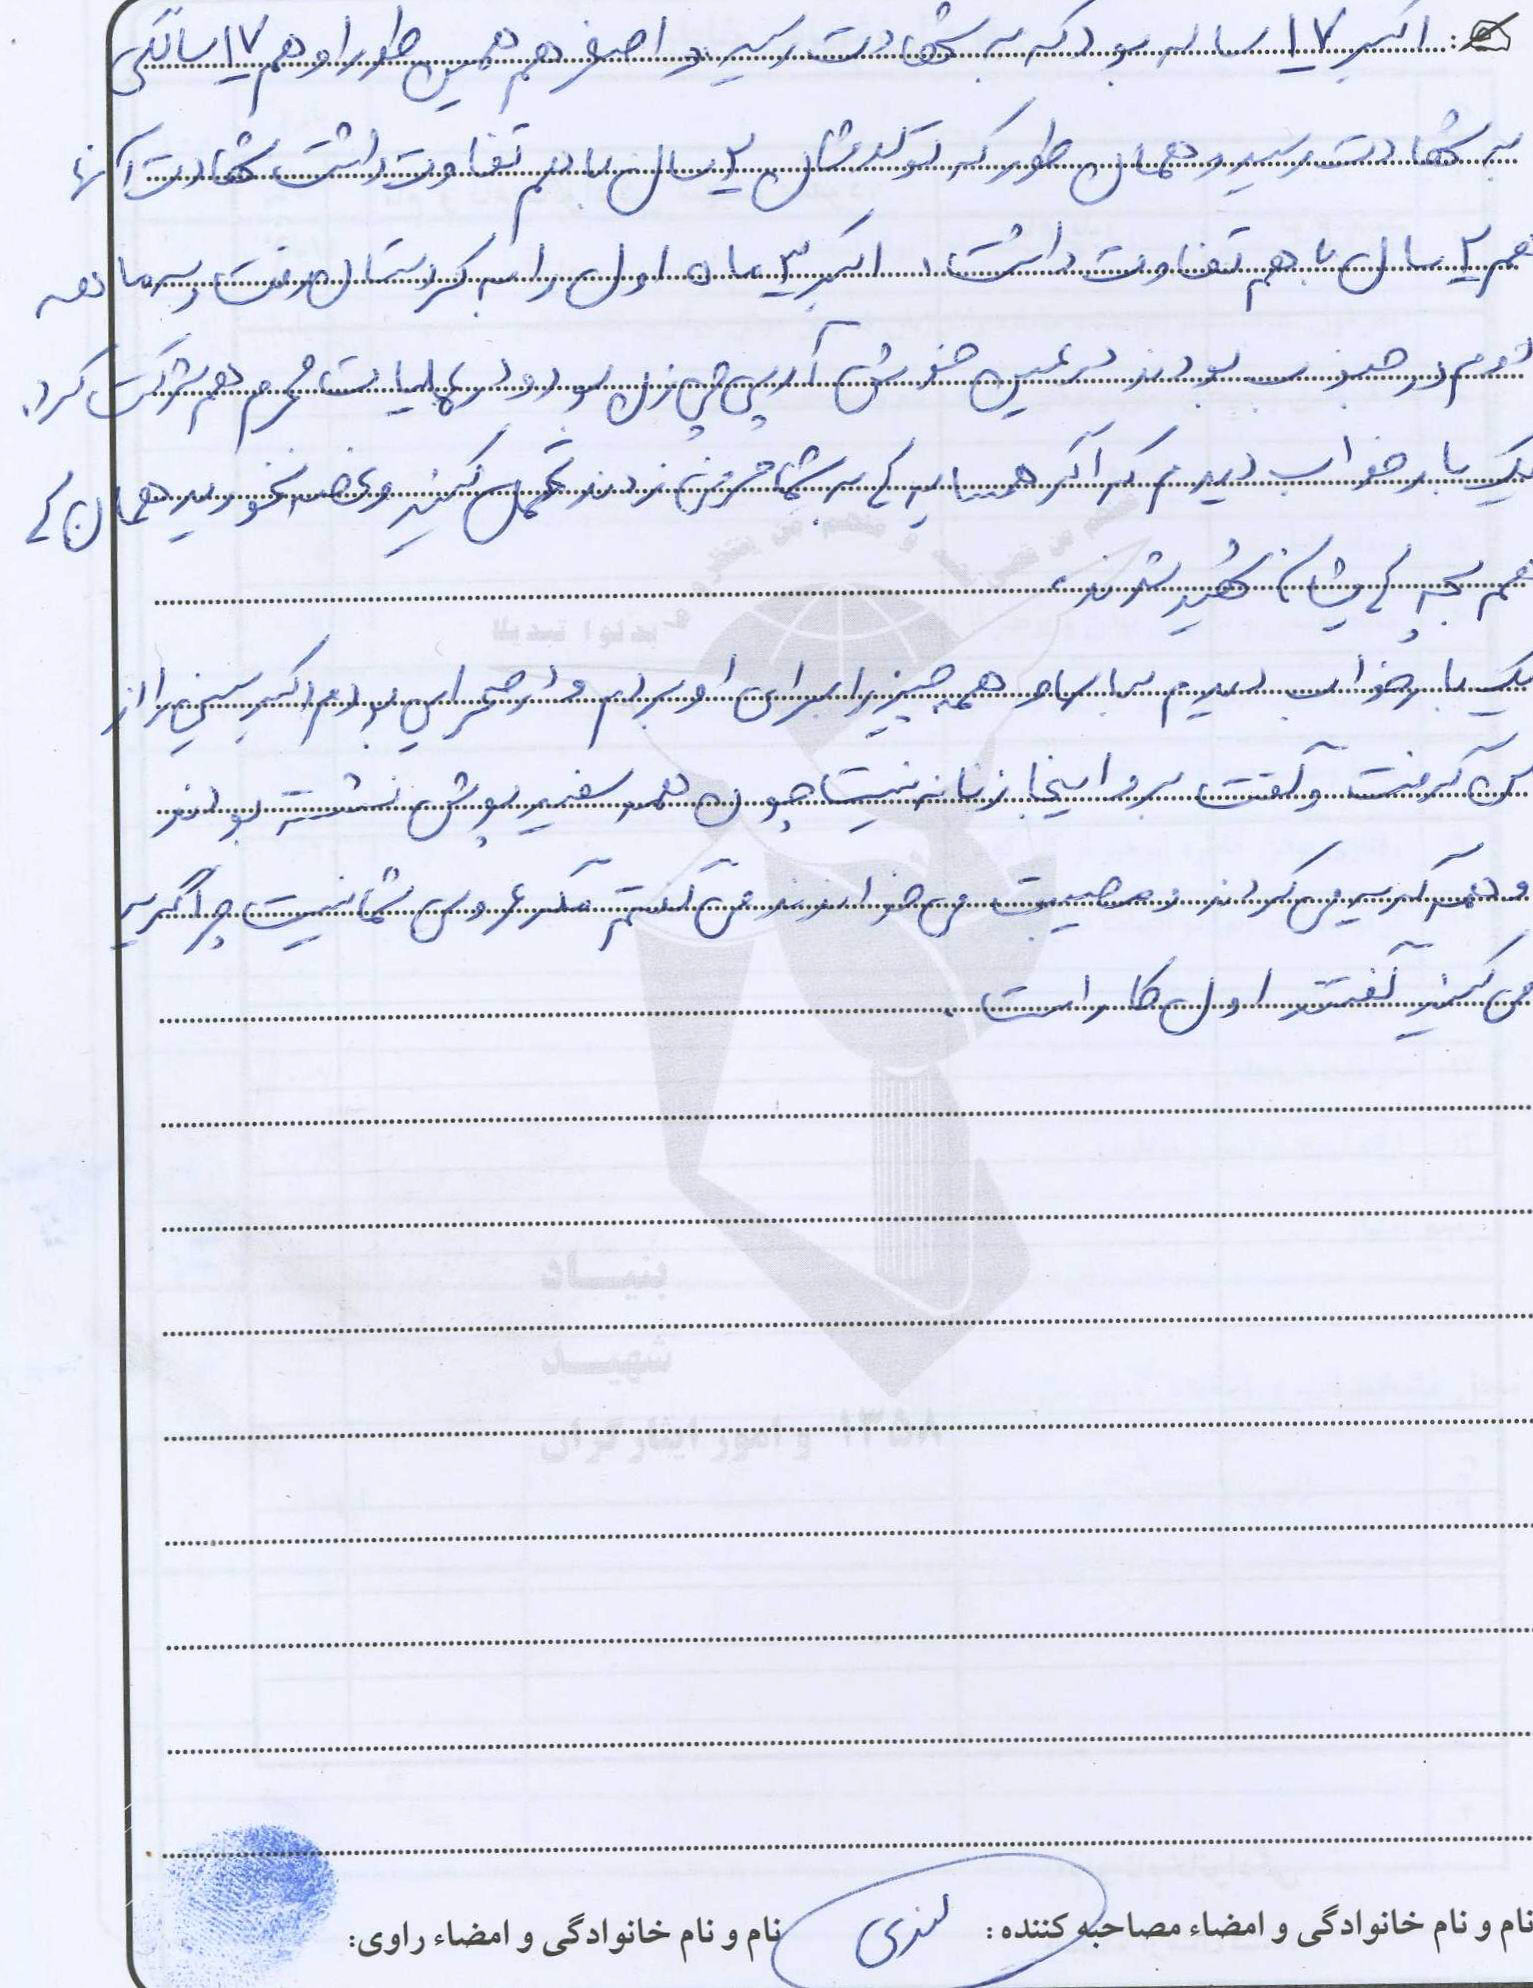 اکبر ۱۷ ساله بود که به شهادت رسید و اصغر هم همین طور او هم ۱۷ سالگی
به شهادت رسید و همان طور که تولدشان ۲ سال با هم تفاوت داشت شهادت آنها
هم ۲ سال با هم تفاوت داشت. اکبر ۳ ماه اول را به کردستان رفت و سه ماهه
دوم در جنوب بودند در عین خوشی آرپی جی زن بود و در عملیات محرم هم شرکت کرد.
یک بار خواب دیدم که اگر همسایه ها به شما حرفی زدند تحمل کنید و غصه نخورید همان ها
هم بچه هایشان شهید شدند.
یک بار خواب دیدم لباس و همه چیز را برای او بردم و در صحرایی بودم اکبر سینی را از
من گرفت و گفت برو اینجا زنانه نیست چون همه سفید پوش نشسته بودند
و همه گریه می کردند و مصیبت می خواندند می گفتم مگر عروسی شما نیست چرا گریه
می کنید گفتند اول کار است.
بنیاد
شهید
و امور ایثارگران
۱۳۵۸
نام و نام خانوادگی و امضاء مصاحبه کننده:
نام و نام خانوادگی و امضاء راوی: